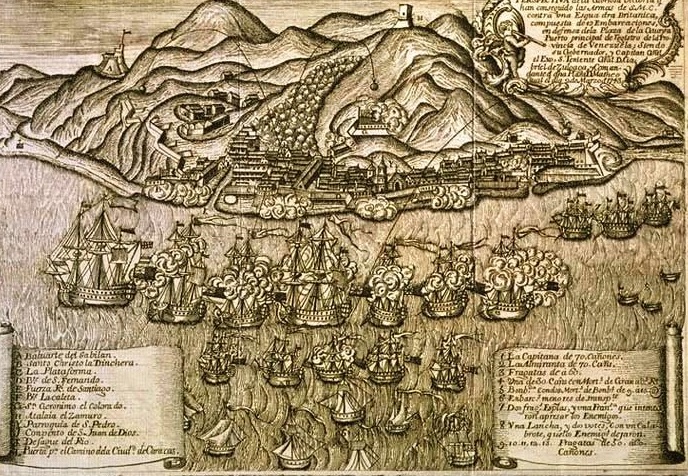 PERSPECTIVA de la Gloriosa Defensa q.
han conseguido las Armas de S.M.C.
contra una Esquadra Britanica,
compuesta de 19 Embarcaciones,
en defensa de la Plaza de la Guayra
Puerto principal de Registro de la Pro-
vincia de Venezuela; Siendo
su Governador, y Capitan Gral.
el Exo. S. Teniente Gral. D. Ga-
briel de Zuloaga, y Coman-
dante de dha Plaza D. Matheo
Gual el dia 2 de Marzo de 1743
A Baluarte del Gabilan.
B Santo Christo la Trinchera.
C La Plataforma.
D Bte. de S. Fernando.
E Fuerza Rl. de Santiago.
F Bte. La caleta.
G Sn. Geronimo el colorado.
H Atalaia el Zamuro.
Y Parroquia de S. Pedro.
Convento de S. Juan de Dios.
Desague del Rio.
Puerta pa. el Camino de la Ciud. de Caracas.
1 La Capitana de 70. Cañones.
2 La Almiranta de 70. Cañs.
3 Fragatas de a 60.
4 Una de 80 Caña con Morts. de Gran
5 Bombs. con dos Morts. de Bombs. de 9. a
6 Embarc. menores de
7 Dos frags. Esplas, y una Fran. que inten-
ron apresar los Enemigos.
8 Una Lancha, y dos votes, con un Cala-
brote, q. los Enemigos dejaron.
9. 10. 11. 12. 13. Fragatas de 50. a 60
Cañones.